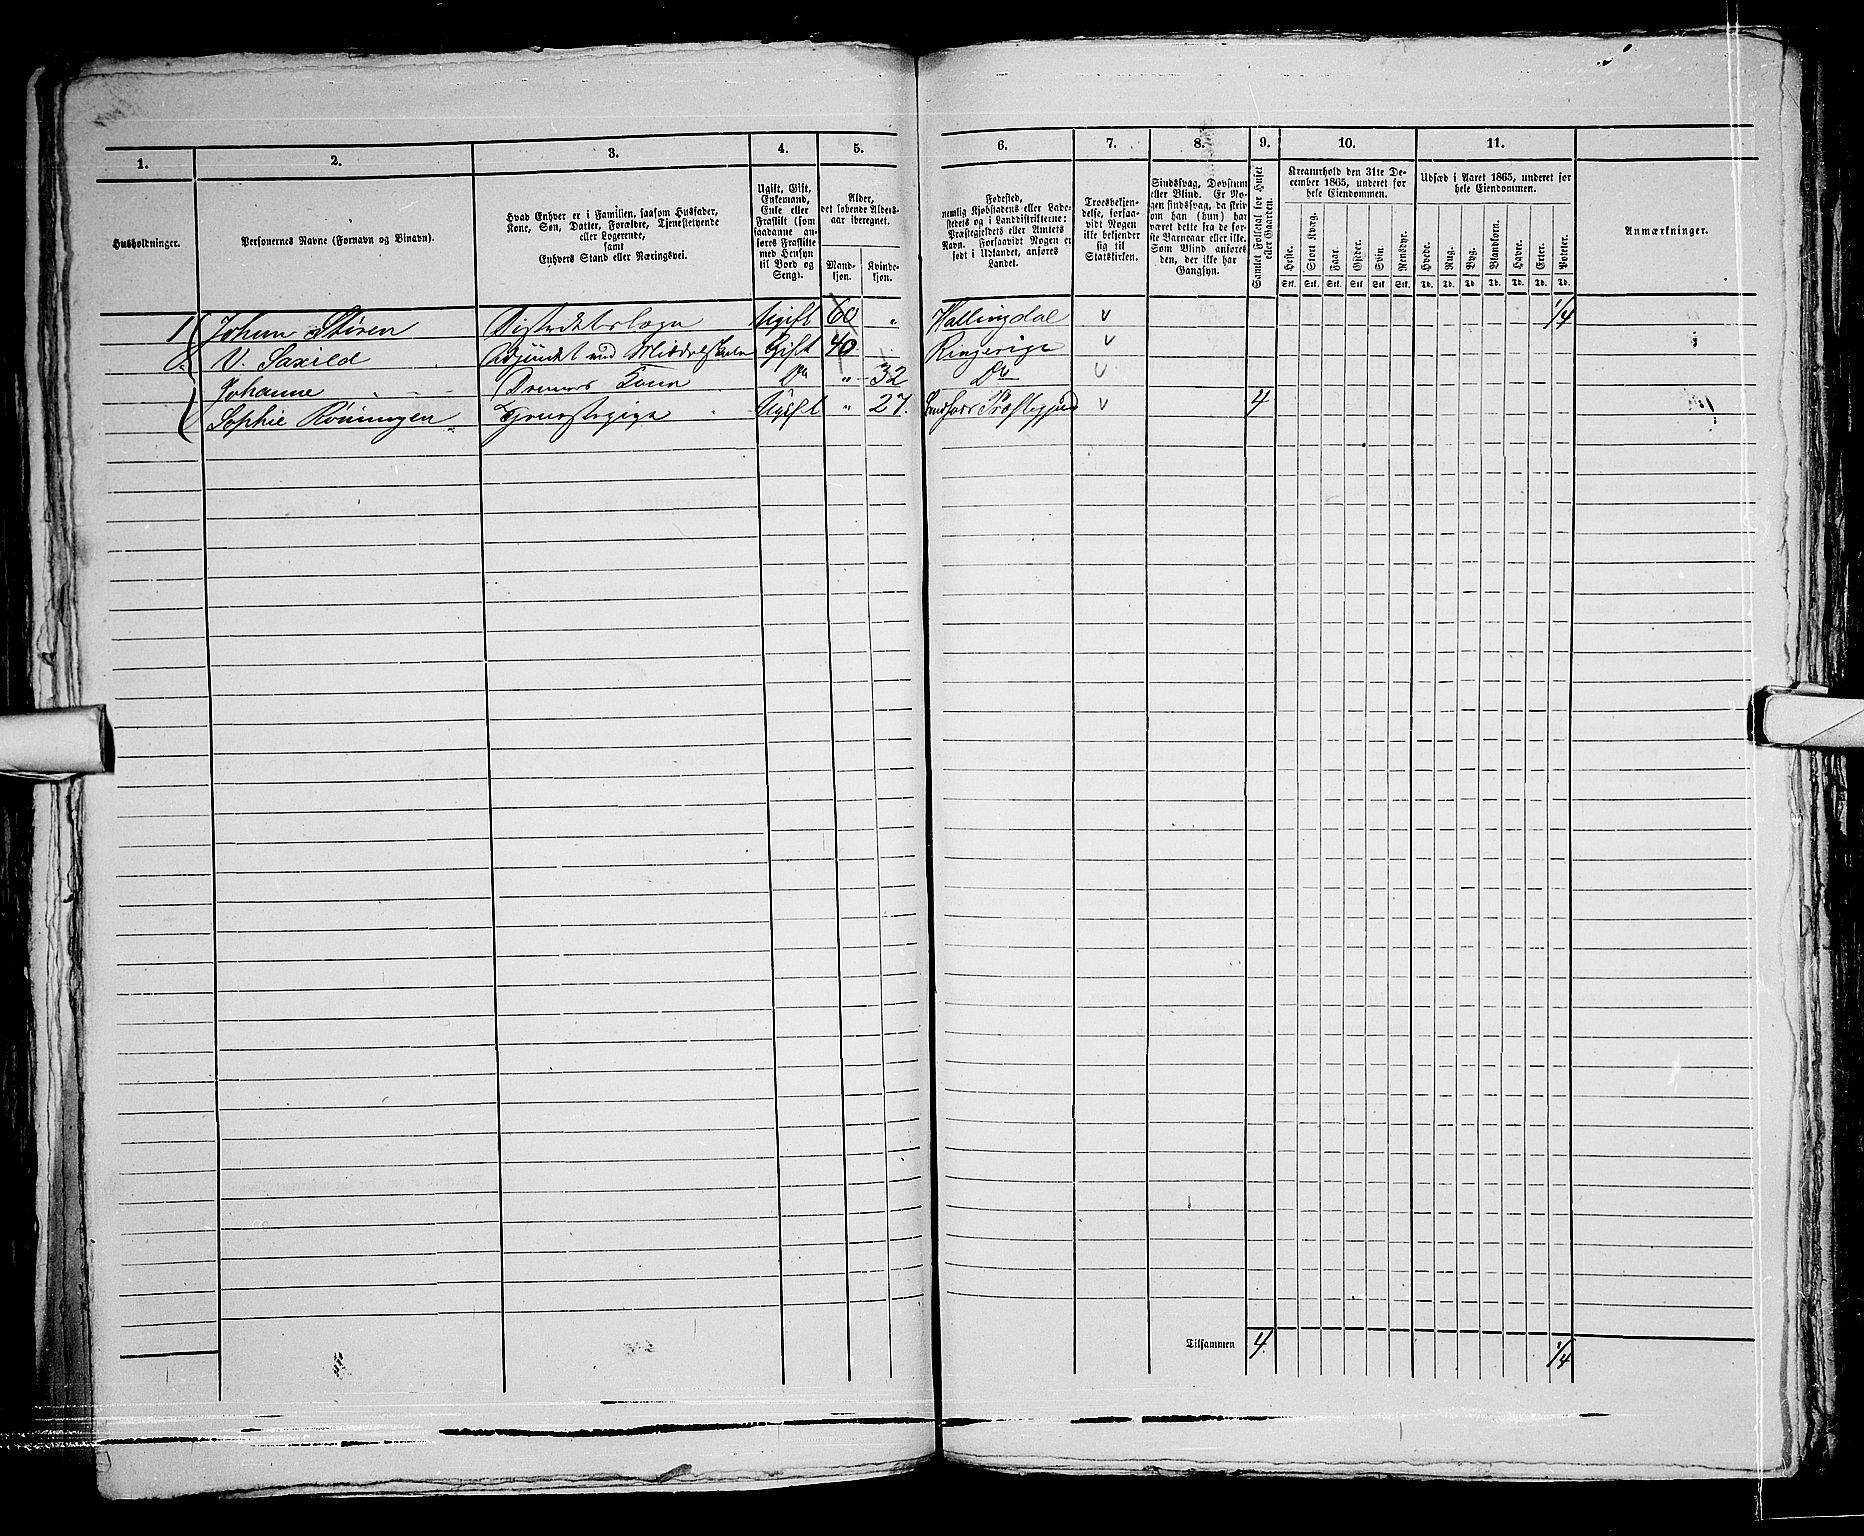 1. 2. 3. 4. 5. 6. 7. 8. 9. 10. 11.
Husholdninger.
Personernes Navne (Fornavn og Binavn).
Hvad Enhver er i Familien, saasom Husfader,
Kone, Søn, Datter, Forældre, Tjenestetyende
eller Logerende,
samt
Enhvers Stand eller Næringsvei.
Ugift, Gift,
Enkemand,
Enke eller
Fraskilt (som
saadanne an-
føres Fraskilte
med Hensyn
til Bord og
Seng).
Alder,
det løbende Alders-
aar iberegnet.
Mand-
kjøn.
Kvinde-
kjøn.
Fødested,
nemlig Kjøbstadens eller Lade-
stedets og i Landdistrikterne:
Præstegjeldets eller Amtets
Navn. Forsaavidt Nogen er
født i Udlandet, anføres
Landet.
Troesbekjen-
delse, forsaa-
vidt Nogen
ikke bekjender
sig til
Statskirken.
Sindssvag, Døvstum
eller Blind. Er No-
gen sindssvag, da skriv
om han (hun) har
været dette fra de før-
ste Barneaar eller ikke.
Som Blind anføres
den, der ikke har
Gangsyn.
Samlet Folketal for Huset
eller Gaarden.
Kreaturhold den 31te De-
cember 1865, underet for
hele Eiendommen.
Heste. Stort Kvæg. Faar. Gjeder. Svin. Rensdyr.
Stk. Stk. Stk. Stk. Stk. Stk.
Udsæd i Aaret 1865, underet for
hele Eiendommen.
Hvede. Rug. Byg. Blandkorn. Havre. Erter. Poteter.
Td. Td. Td. Td. Td. Td. Td.
Anmærkninger.
1 Johan Støren Distriktslæge Ugift 60 „ Hallingdal v 1/4
V. Saxild Adjunkt ved Middelskolen Gift 40 Ringerige v
Johanne Drenes Kone Do „ 32 Do v
Sophie Röningen Tjenestepige Ugift „ 27. v 4
Tilsammen 4 1/4